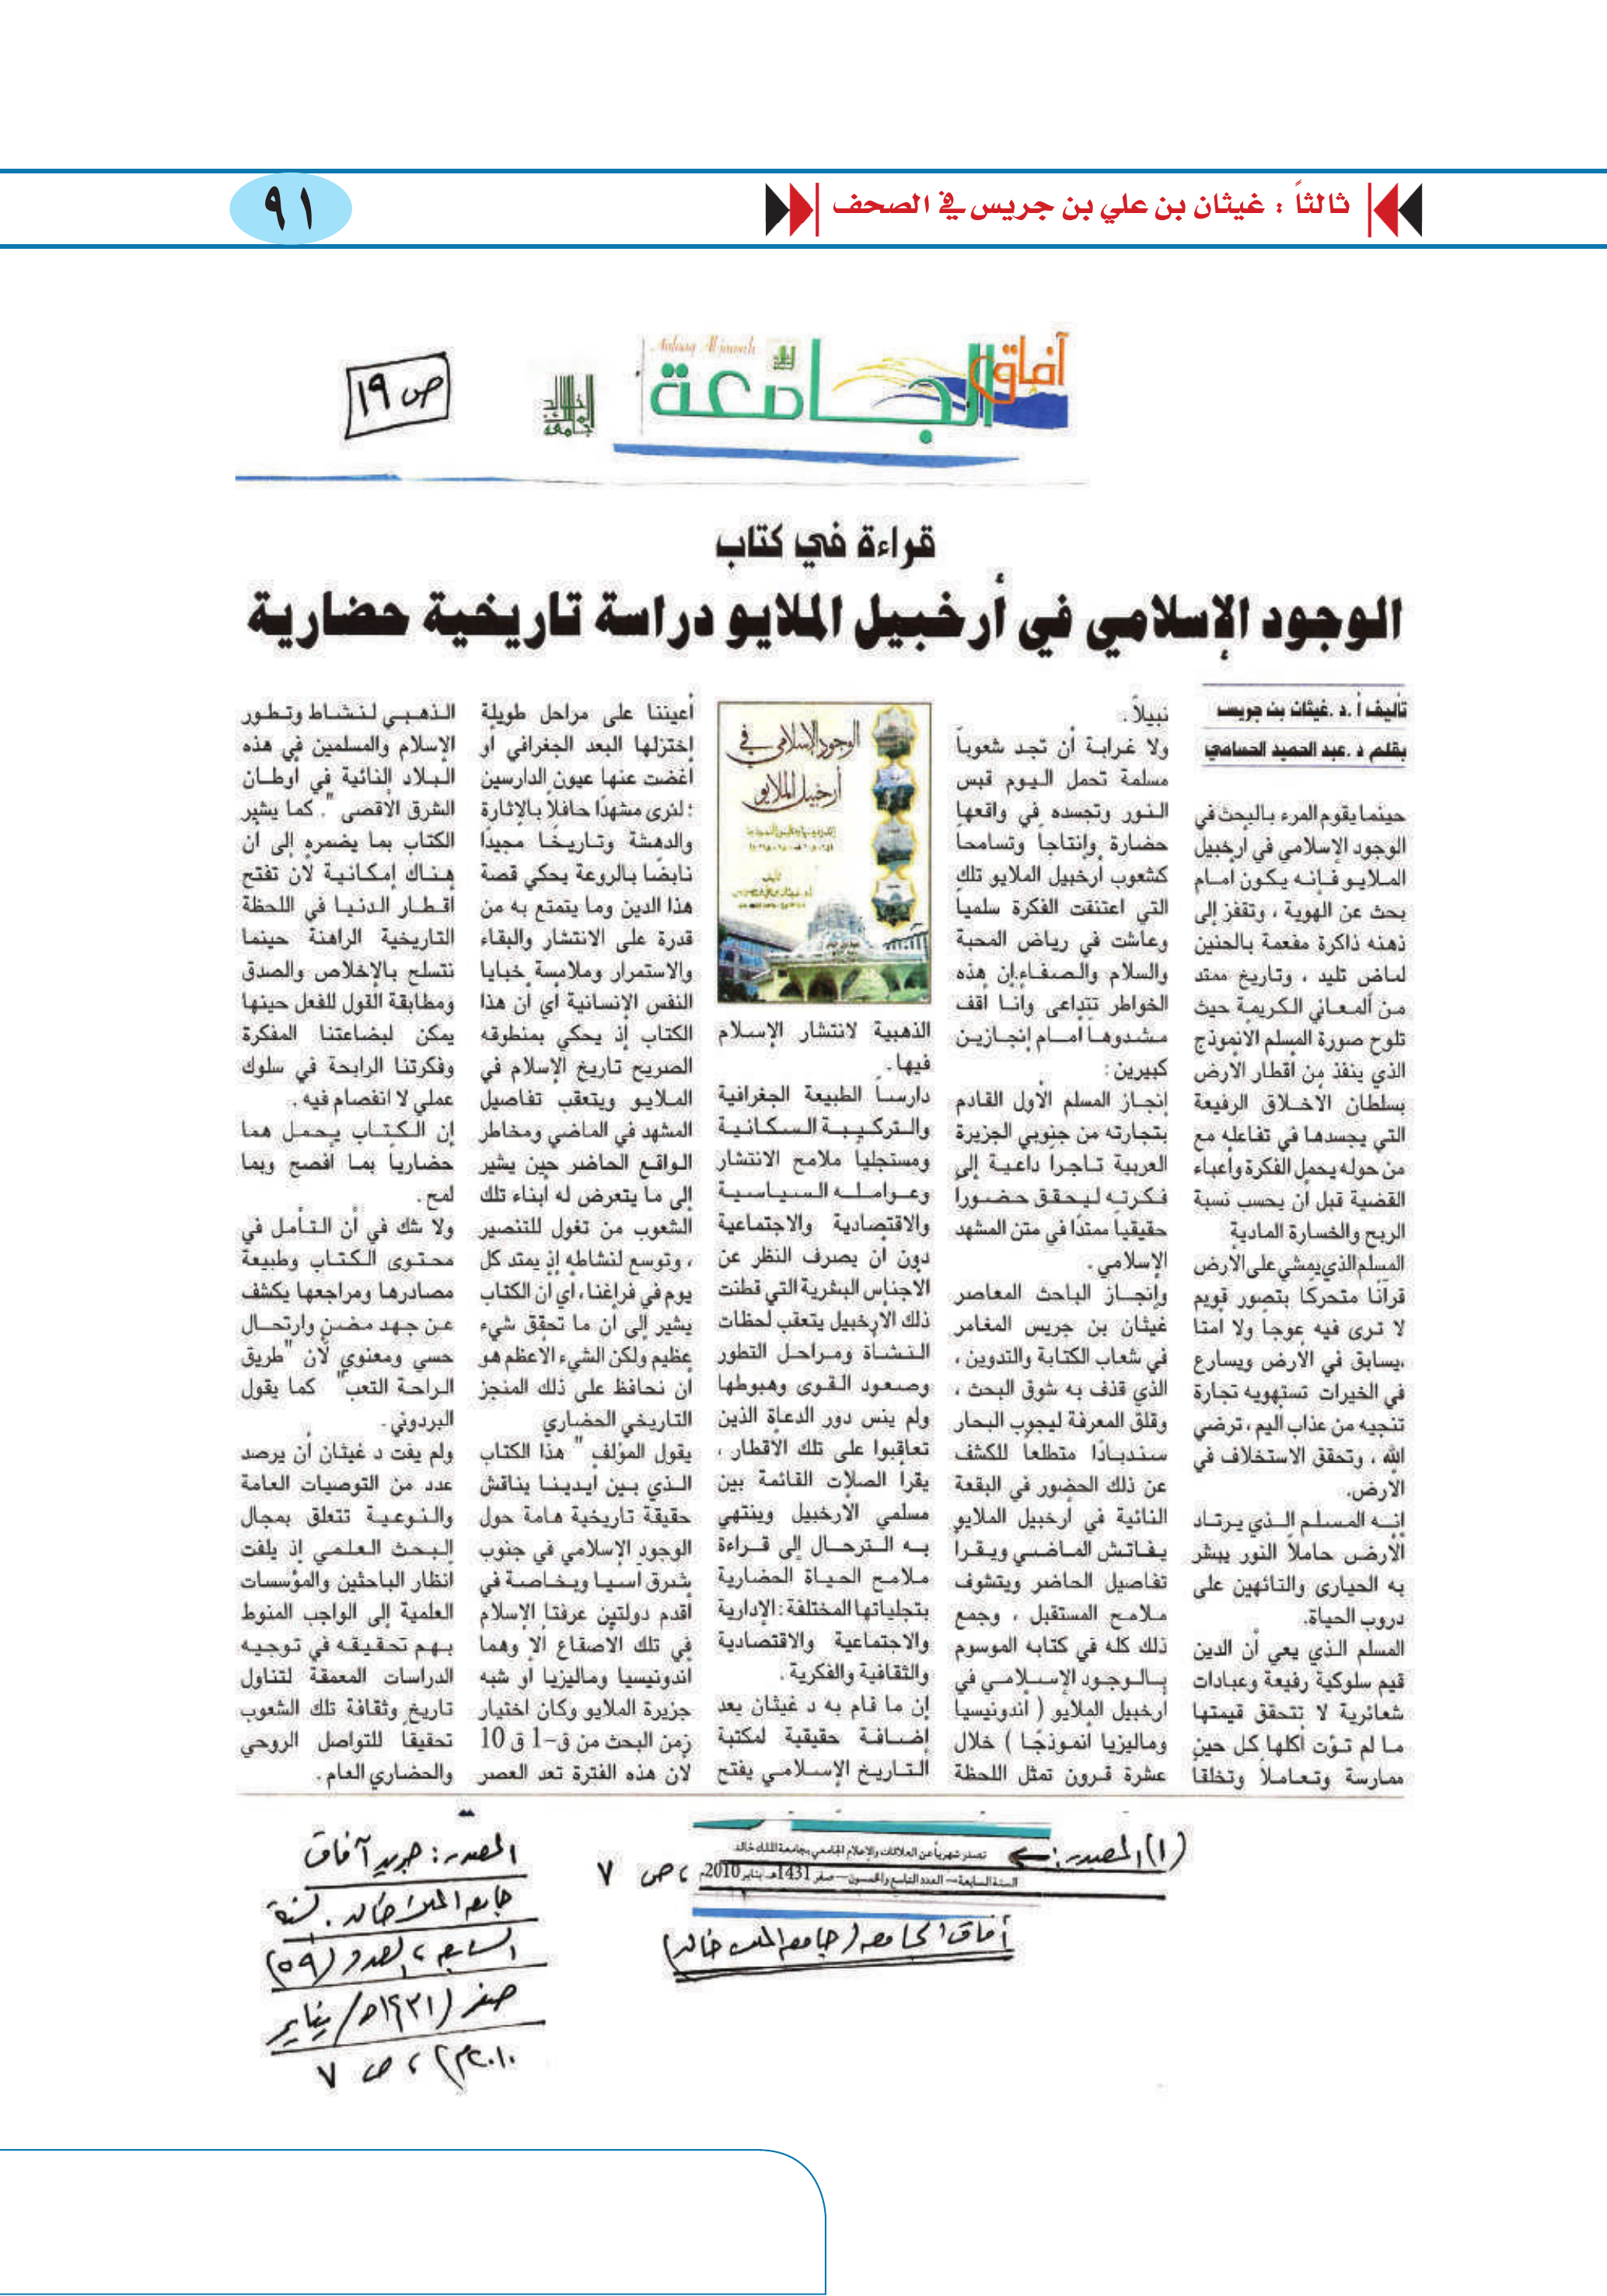 ثالثاً : غيثان بن علي بن جريس في الصحف
٩١
آفاق الجامعة
Aafaaq Al jameah
جامعة الملك خالد
ص ١٩
قراءة في كتاب
الوجود الإسلامي في أرخبيل الملايو دراسة تاريخية حضارية
تأليف أ.د.غيثان بن جريس
بقلم د.عبد الحميد الحسامي
حينما يقوم المرء بالبحث في
الوجود الإسلامي في أرخبيل
الملايو فإنه يكون أمام
بحث عن الهوية ، وتقفز إلى
ذهنه ذاكرة مفعمة بالحنين
لماض تليد ، وتاريخ ممتد
من المعاني الكريمة حيث
تلوح صورة المسلم الأنموذج
الذي ينفذ من أقطار الأرض
بسلطان الأخلاق الرفيعة
التي يجسدها في تفاعله مع
من حوله يحمل الفكرة وأعباء
القضية قبل أن يحسب نسبة
الربح والخسارة المادية
المسلم الذي يمشي على الأرض
قرآنًا متحركًا بتصور قويم
لا ترى فيه عوجاً ولا أمتا
،يسابق في الأرض ويسارع
في الخيرات تستهويه تجارة
تنجيه من عذاب اليم ، ترضي
الله ، وتحقق الاستخلاف في
الأرض.
إنه المسلم الذي يرتاد
الأرض حاملاً النور يبشر
به الحيارى والتائهين على
دروب الحياة.
المسلم الذي يعي أن الدين
قيم سلوكية رفيعة وعبادات
شعائرية لا تتحقق قيمتها
ما لم تؤت أكلها كل حين
ممارسة وتعاملاً وتخلقا
نبيلاً .
ولا غرابة أن تجد شعوباً
مسلمة تحمل اليوم قبس
النور وتجسده في واقعها
حضارة وإنتاجاً وتسامحاً
كشعوب أرخبيل الملايو تلك
التي اعتنقت الفكرة سلمياً
وعاشت في رياض المحبة
والسلام والصفاء.إن هذه
الخواطر تتداعى وأنا أقف
مشدوهاً أمام إنجازين
كبيرين :
إنجاز المسلم الأول القادم
بتجارته من جنوبي الجزيرة
العربية تاجراً داعية إلى
فكرته ليحقق حضورا
حقيقياً ممتدًا في متن المشهد
الإسلامي .
وإنجاز الباحث المعاصر
غيثان بن جريس المغامر
في شعاب الكتابة والتدوين ،
الذي قذف به شوق البحث ،
وقلق المعرفة ليجوب البحار
سندبادًا متطلعا للكشف
عن ذلك الحضور في البقعة
النائية في أرخبيل الملايو
يفاتش الماضي ويقرأ
تفاصيل الحاضر ويتشوف
ملامح المستقبل ، وجمع
ذلك كله في كتابه الموسوم
بالوجود الإسلامي في
أرخبيل الملايو ( أندونيسيا
وماليزيا أنموذجًا ) خلال
عشرة قرون تمثل اللحظة
الوجود الإسلامي في
أرخبيل الملايو
الذهبية لانتشار الإسلام
فيها.
دارساً الطبيعة الجغرافية
والتركيبة السكانية
ومستجلياً ملامح الانتشار
وعوامله السياسية
والاقتصادية والاجتماعية
دون أن يصرف النظر عن
الأجناس البشرية التي قطنت
ذلك الأرخبيل يتعقب لحظات
النشأة ومراحل التطور
وصعود القوى وهبوطها
ولم ينس دور الدعاة الذين
تعاقبوا على تلك الأقطار ،
يقرأ الصلات القائمة بين
مسلمي الأرخبيل وينتهي
به الترحال إلى قراءة
ملامح الحياة الحضارية
بتجلياتها المختلفة: الإدارية
والاجتماعية والاقتصادية
والثقافية والفكرية .
إن ما قام به د غيثان يعد
إضافة حقيقية لمكتبة
التاريخ الإسلامي يفتح
أعيننا على مراحل طويلة
إختزلها البعد الجغرافي أو
أغضت عنها عيون الدارسين
؛ لنرى مشهدًا حافلاً بالإثارة
والدهشة وتاريخًا مجيدًا
نابضًا بالروعة يحكي قصة
هذا الدين وما يتمتع به من
قدرة على الانتشار والبقاء
والاستمرار وملامسة خبايا
النفس الإنسانية أي أن هذا
الكتاب إذ يحكي بمنطوقه
الصريح تاريخ الإسلام في
الملايو ويتعقب تفاصيل
المشهد في الماضي ومخاطر
الواقع الحاضر حين يشير
إلى ما يتعرض له أبناء تلك
الشعوب من تغول للتنصير
، وتوسع لنشاطه إذ يمتد كل
يوم في فراغنا، أي أن الكتاب
يشير إلى أن ما تحقق شيء
عظيم ولكن الشيء الأعظم هو
أن نحافظ على ذلك المنجز
التاريخي الحضاري
يقول المؤلف " هذا الكتاب
الذي بين أيدينا يناقش
حقيقة تاريخية هامة حول
الوجود الإسلامي في جنوب
شرق آسيا وبخاصة في
أقدم دولتين عرفتا الإسلام
في تلك الأصقاع ألا وهما
أندونيسيا وماليزيا أو شبه
جزيرة الملايو وكان اختيار
زمن البحث من ق1- ق10
لأن هذه الفترة تعد العصر
الذهبي لنشاط وتطور
الإسلام والمسلمين في هذه
البلاد النائية في أوطان
الشرق الأقصى ". كما يشير
الكتاب بما يضمره إلى أن
هناك إمكانية لأن تفتح
أقطار الدنيا في اللحظة
التاريخية الراهنة حينما
نتسلح بالإخلاص والصدق
ومطابقة القول للفعل حينها
يمكن لبضاعتنا المفكرة
وفكرتنا الرابحة في سلوك
عملي لا انفصام فيه .
إن الكتاب يحمل هما
حضارياً بما أفصح وبما
لمح .
ولا شك في أن التأمل في
محتوى الكتاب وطبيعة
مصادرها ومراجعها يكشف
عن جهد مضن وارتحال
حسي ومعنوي لأن "طريق
الراحة التعب" كما يقول
البردوني.
ولم يفت د غيثان أن يرصد
عدد من التوصيات العامة
والنوعية تتعلق بمجال
البحث العلمي إذ يلفت
أنظار الباحثين والمؤسسات
العلمية إلى الواجب المنوط
بهم تحقيقه في توجيه
الدراسات المعمقة لتناول
تاريخ وثقافة تلك الشعوب
تحقيقًا للتواصل الروحي
والحضاري العام .
(١) المصدر:
تصدر شهرياً عن العلاقات والإعلام الجامعي بجامعة الملك خالد
السنة السابعة – العدد التاسع والخمسون – صفر 1431هـ يناير 2010م ، ص ٧
آفاق الجامعة (جامعة الملك خالد)
المصدر: جريد آفاق
جامعة الملك خالد . لسنة
السابعة ، العدد (٥٩)
صفر (١٤٣١هـ/ يناير
٢٠١٠م) ، ص ٧